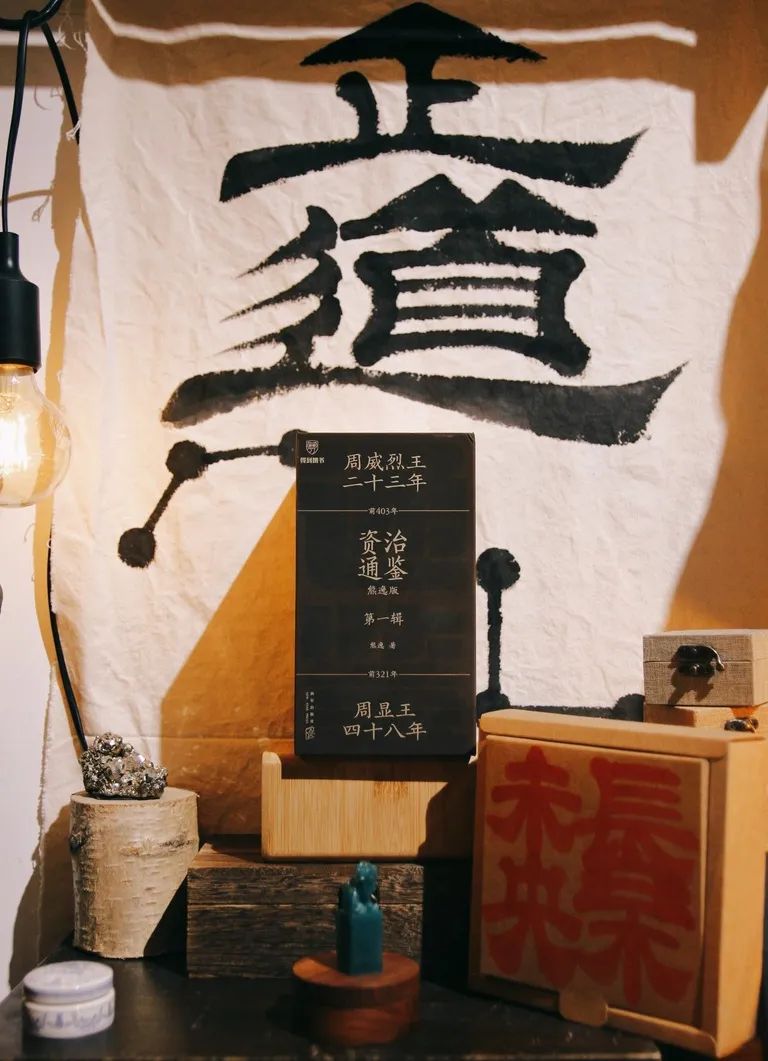 正
道
得到图书
周威烈王
二十三年
前403年
资治
通鉴
熊逸版
第一辑
熊逸 著
前321年
周显王
四十八年
長樂
未央